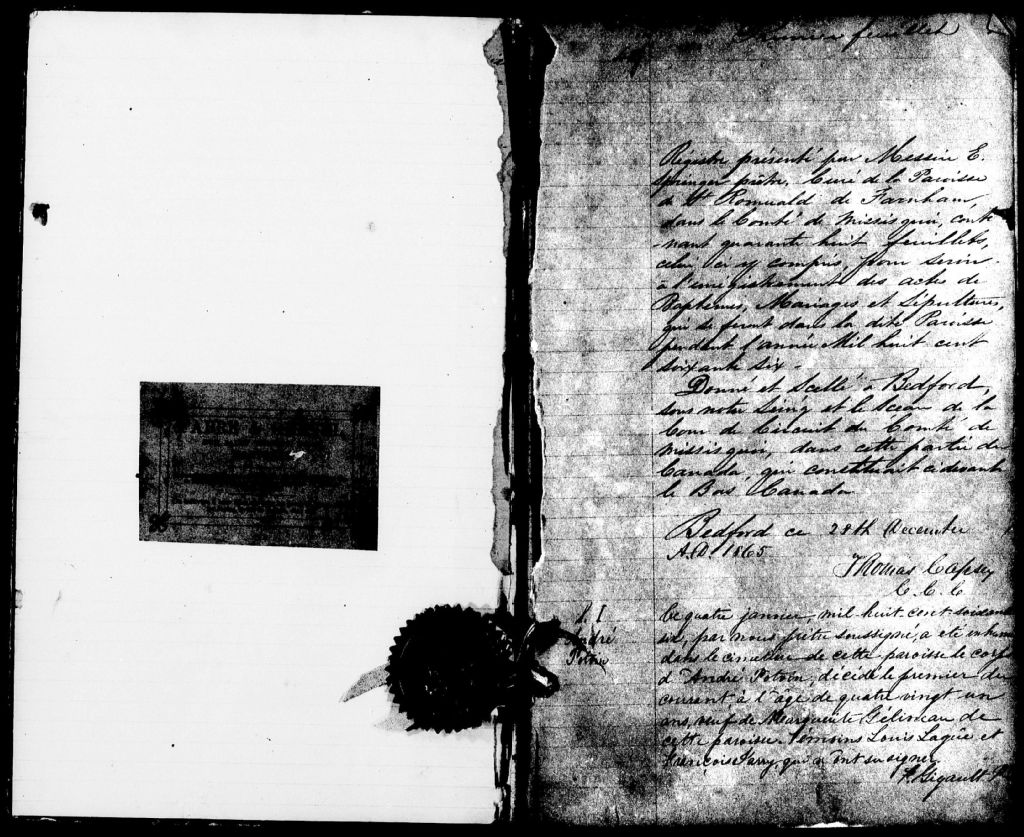 Premier feuillet
Registre présenté par Messire E.
Springer prêtre, Curé de la Paroisse
de St Romuald de Farnham,
dans le Comté de Missisquoi, conte
-nant quarante huit feuillets,
celui ci y compris, pour servir
à l'enregistrement des actes de
Baptêmes, Mariages et Sépultures,
qui se feront dans la dite Paroisse
pendant l'année Mil huit cent
soixante six.
Donné et Scellé à Bedford,
sous notre Seing et le Sceau de la
Cour de Circuit du Comté de
Missisquoi, dans cette partie du
Canada, qui constituait cidevant
le Bas Canada
Bedford ce 28th Décembre
A.D. 1865
Thomas
C. C. C.
S. 1
André
Potvin
Ce quatre janvier, mil-huit cent soixante
six, par nous prêtre soussigné, a été inhumé
dans le cimetière de cette paroisse le corps
d'André Potvin, décédé le premier du
courant à l'âge de quatre vingt un
ans, veuf de Marguerite Gélineau de
cette paroisse. Témoins Louis Laguë et
Françoise Parry, qui n'ont su signer.
Gigault